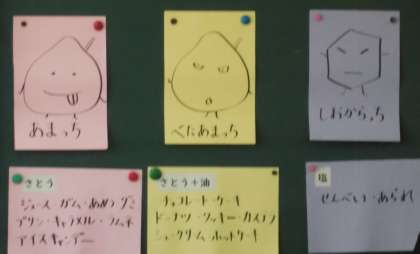 あまっち
べたあまっち
しおからっち
さとう
ジュース・ガム・あめ・グミ
プリン・キャラメル・ラムネ
アイスキャンデー
さとう+油
チョコレート・ケーキ
ドーナツ・クッキー・カステラ
シュークリーム・ホットケーキ
塩
せんべい・あられ